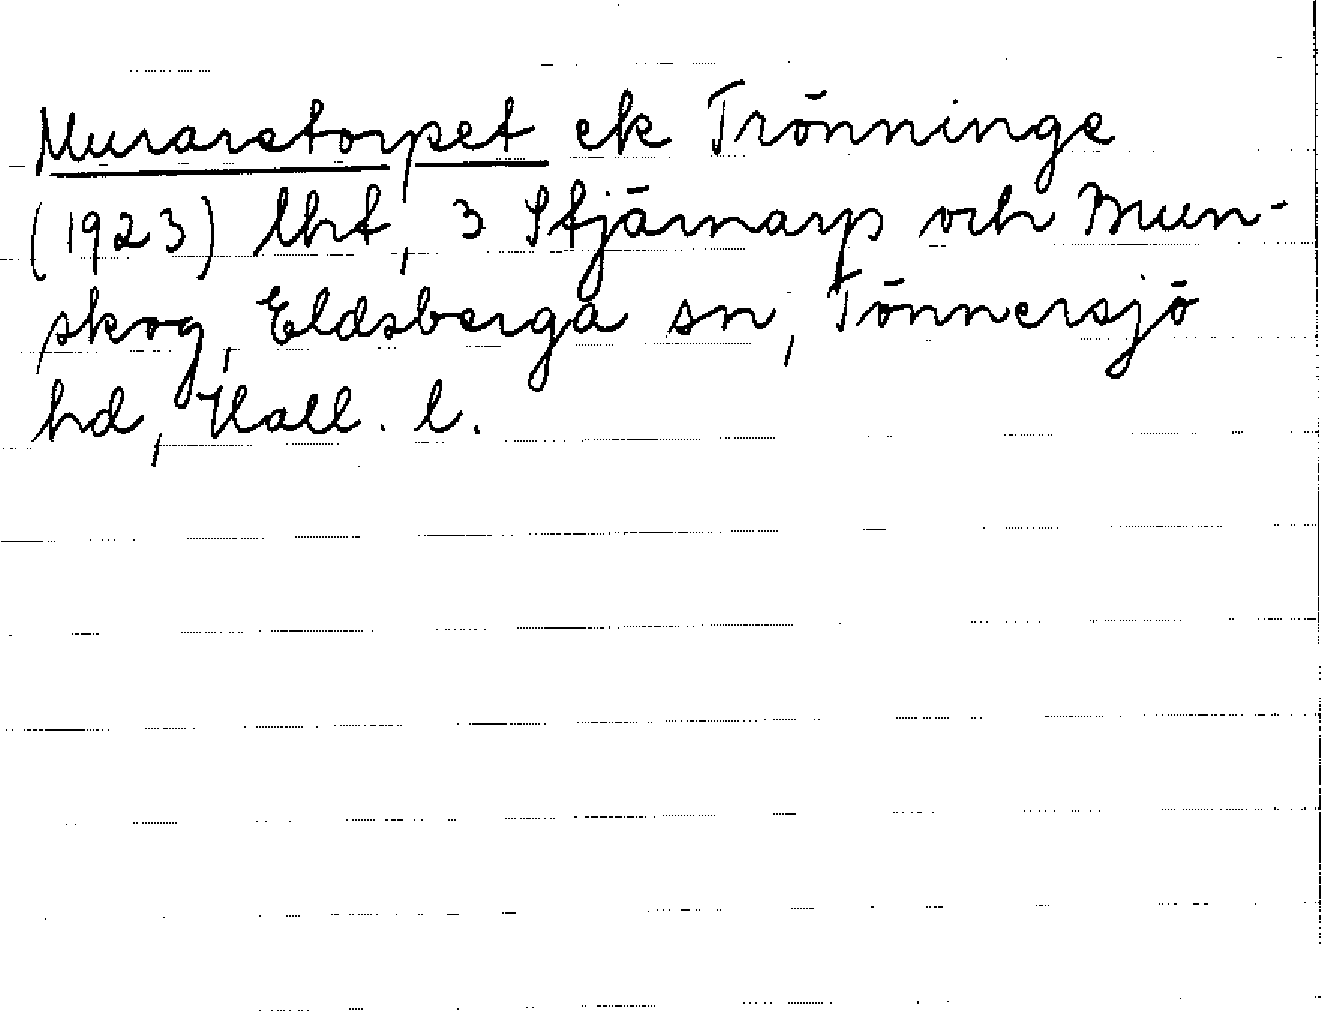 Muraretorpet ek Trönninge
(1923) lht, 3 Stjärnarp och Mun-
skog, Eldsberga sn, Tönnersjö
hd, Hall. l.